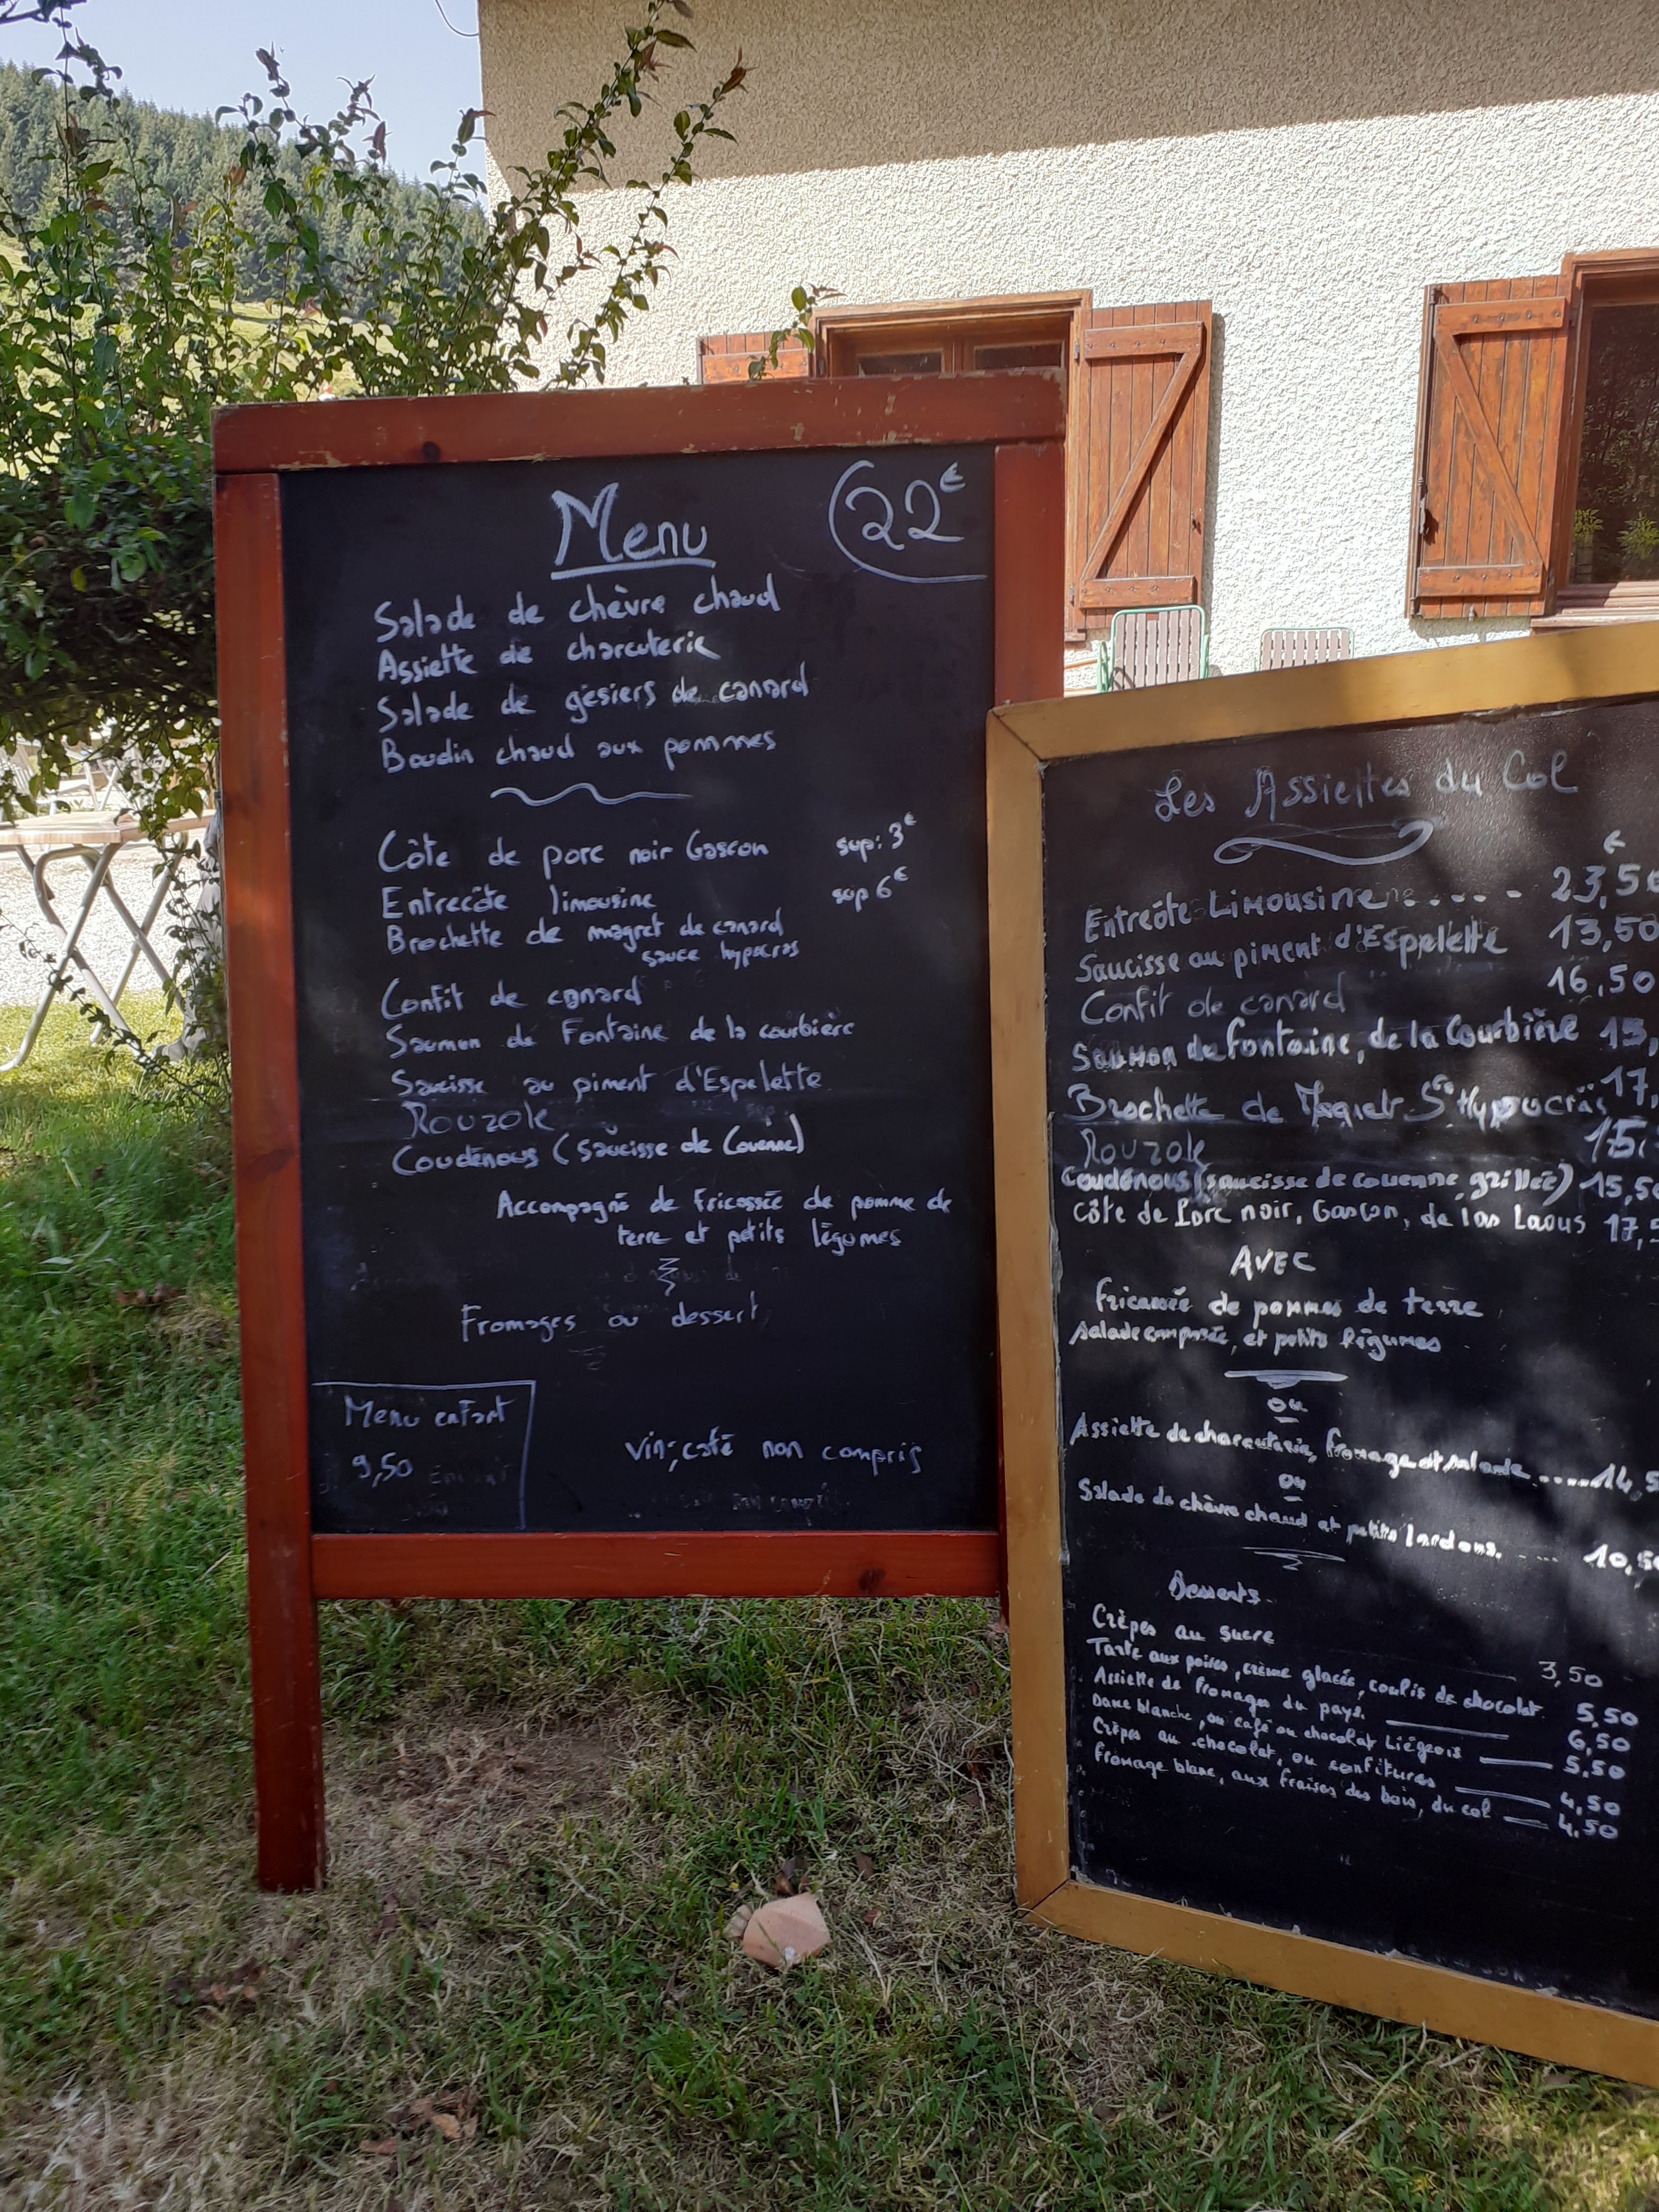 Menu 22€
Salade de chèvre chaud
Assiette de charcuterie
Salade de gésiers de canard
Boudin chaud aux pommes
Côte de porc noir Gascon sup: 3€
Entrecôte limousine sup 6€
Brochette de magret de canard
sauce hypocras
Confit de canard
Saumon de Fontaine de la courbière
Saucisse au piment d'Espelette
Rouzole
Coudenous (saucisse de Couenne)
Accompagné de fricassée de pomme de
terre et petits légumes
Fromages ou dessert
Menu enfant
9,50
vin, café non compris
Les Assiettes du Col
€
Entrecôte Limousine .... 23,50
Saucisse au piment d'Espelette 13,50
Confit de canard 16,50
Saumon de fontaine, de la Courbière 15,
Brochette de Magret Sce Hypocras 17,
Rouzole 15,
Coudenous (saucisse de couenne grillée) 15,50
Côte de Porc noir, Gascon, de las Laous 17,5
AVEC
fricassée de pommes de terre
salade composée, et petits légumes
ou
Assiette de charcuterie, fromage et salade ..... 14,5
ou
Salade de chèvre chaud et petits lardons. .... 10,50
Desserts
Crêpes au sucre 3,50
Tarte aux poires, crème glacée, coulis de chocolat 5,50
Assiette de fromages du pays. 6,50
Dame blanche, ou café ou chocolat Liégeois 5,50
Crêpes au chocolat, ou confitures 4,50
fromage blanc, aux fraises des bois, du col 4,50